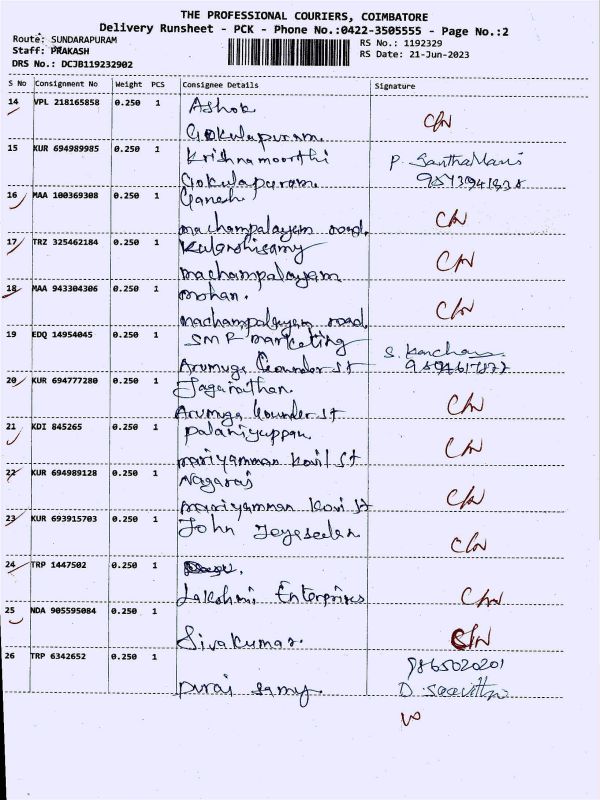 THE PROFESSIONAL COURIERS, COIMBATORE
Delivery Runsheet - PCK - Phone No.:0422-3505555 - Page No.:2
Route: SUNDARAPURAM
RS No.: 1192329
Staff: PRAKASH
RS Date: 21-Jun-2023
DRS No.: DCJB119232902
S No Consignment No Weight PCS Consignee Details Signature
14 VPL 218165858 0.250 1 Ashok
Gokulapuram C/N
15 KUR 694989985 0.250 1 Krishnamoorthi P.
Gokulapuram
16 MAA 100369308 0.250 1 Ganesh
machampalayam road. C/N
17 TRZ 325462184 0.250 1
machampalayam C/N
18 MAA 943304306 0.250 1 mohan.
machampalayam road C/N
19 EDQ 14954045 0.250 1 SMR marketing S.
Arumuga Gounder St
20 KUR 694777280 0.250 1 Jaganathan
Arumuga Gounder St C/N
21 KDI 845265 0.250 1 Palaniyappan
mariyamman Kovil St C/N
22 KUR 694989128 0.250 1 Nagaraj
mariyamman Kovi St C/N
23 KUR 693915703 0.250 1 John Jeyaseelan
C/N
24 TRP 1447502 0.250 1
Lakshmi Enterprises C/N
25 NDA 905595084 0.250 1
Sivakumar. C/N
26 TRP 6342652 0.250 1 9865020201
Durai samy D.